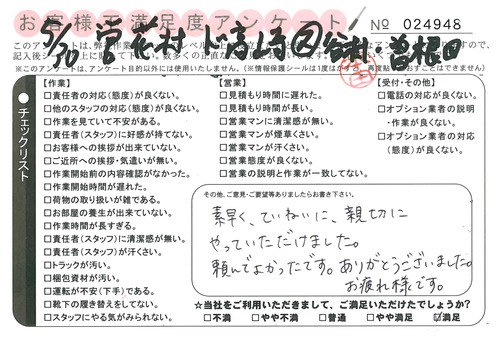 お客様不満足度アンケート
№ 024948
5/10 営 花村
チェックリスト
【作業】
□責任者の対応(態度)が良くない。
□他のスタッフの対応(態度)が良くない。
□作業を見ていて不安がある。
□責任者(スタッフ)に好感が持てない。
□お客様への挨拶が出来ていない。
□ご近所への挨拶・気遣いが無い。
□作業開始前の内容確認がなかった。
□作業開始時間が遅れた。
□荷物の取り扱いが雑である。
□お部屋の養生が出来ていない。
□作業時間が長すぎる。
□責任者(スタッフ)に清潔感が無い。
□責任者(スタッフ)が汗くさい。
□トラックが汚い。
□梱包資材が汚い。
□運転が不安(下手)である。
□靴下の履き替えをしてない。
□スタッフにやる気がみられない。
【営業】
□見積もり時間に遅れた。
□見積もり時間が長い。
□営業マンに清潔感が無い。
□営業マンが煙草くさい。
□営業マンが汗くさい。
□営業態度が良くない。
□営業の説明と作業が一致してない。
【受付・その他】
□電話の対応が良くない。
□オプション業者の説明
・作業が良くない。
□オプション業者の対応
(態度)が良くない。
その他、ご意見・ご要望等ありましたらお書き下さい。
素早く、ていねいに、親切に
やっていただけました。
頼んでよかったです。ありがとうございました。
お疲れ様です。
★当社をご利用いただきまして、ご満足いただけたでしょうか?
□不満 □やや不満 □普通 □やや満足 ☑満足